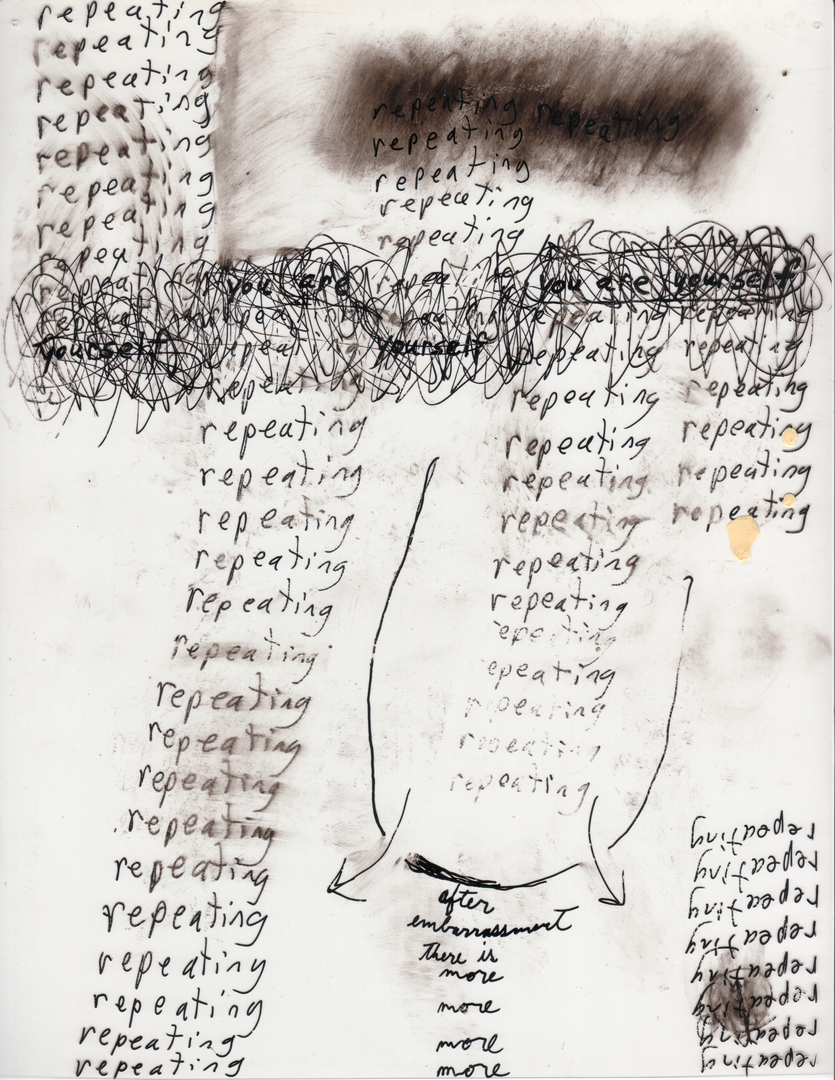 repeating
repeating
repeating
repeating
repeating
repeating
repeating
repeating
repeating
repeating
yourself
you are
repeating
repeating
repeating
repeating
repeating
repeating
repeating
repeating
repeating
repeating
repeating
repeating
repeating
repeating
repeating
repeating
repeating
repeating
repeating
repeating repeating
repeating
repeating
repeating
repeating
repeating
repeating
yourself
you are yourself
repeating
repeating
repeating
repeating
repeating
repeating
repeating
repeating
repeating
repeating
repeating
repeating
repeating
repeating
repeating
repeating
repeating
repeating
repeating
after
embarrassment
there is
more
more
more
more
repeating
repeating
repeating
repeating
repeating
repeating
repeating
repeating